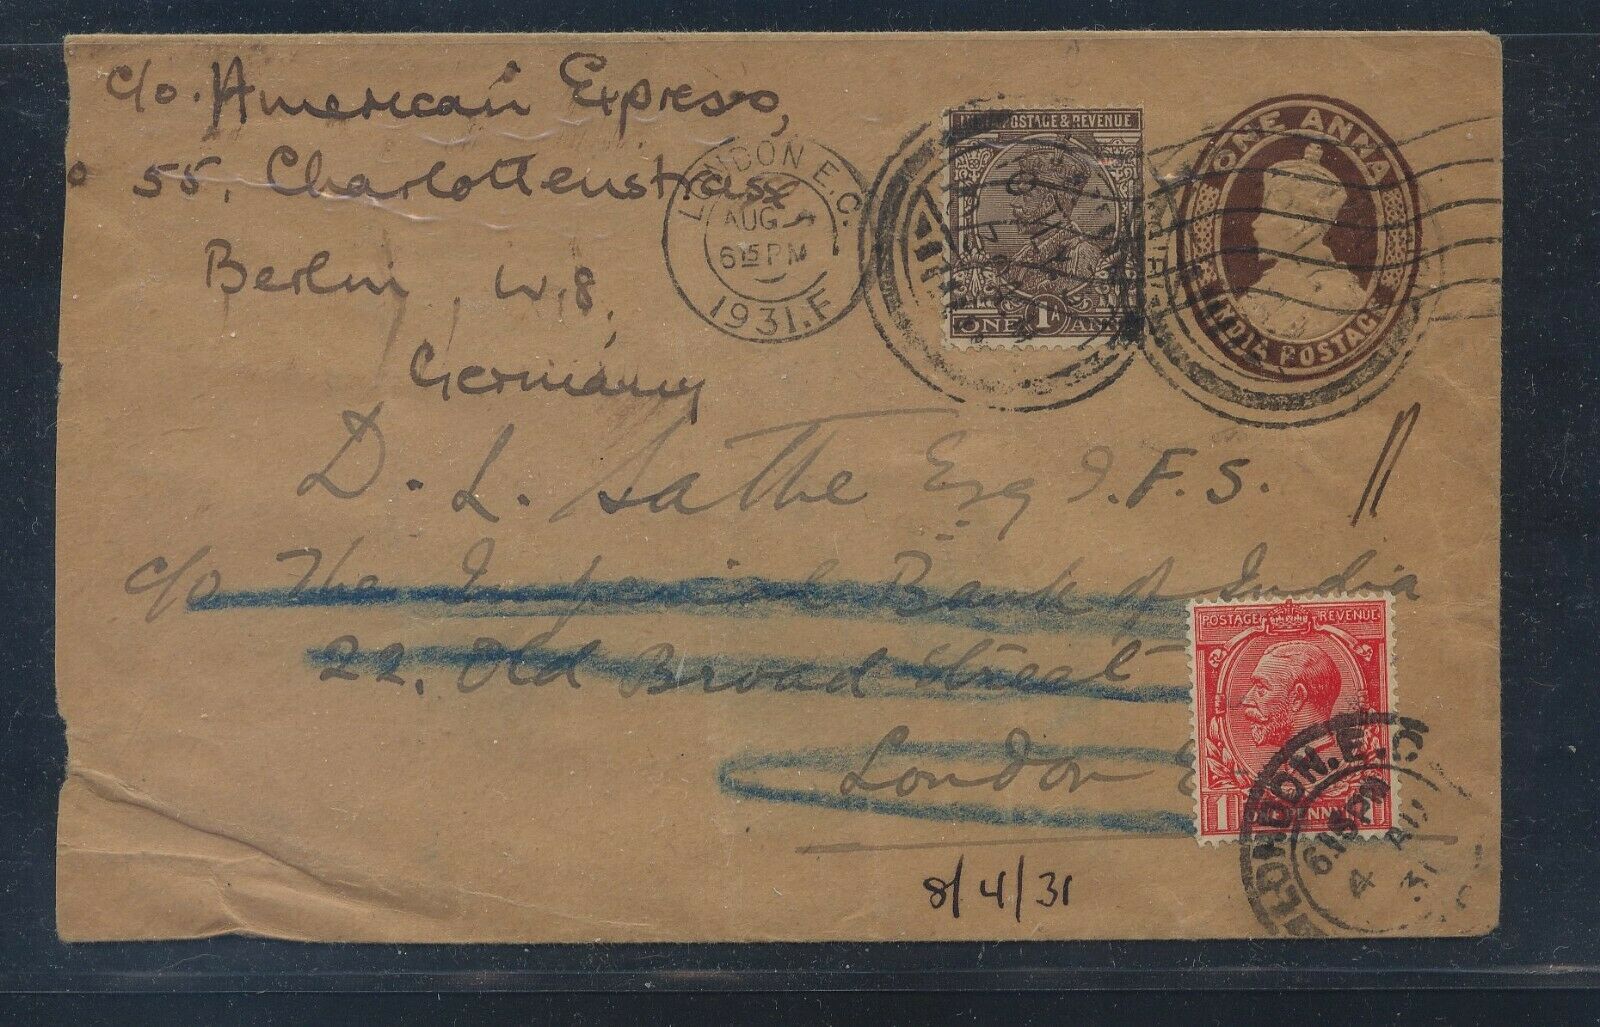 c/o. American Express,
55, Charlottenstrasse
Berlin W.8,
Germany
LONDON E.C.
AUG 4
6 15 PM
1931. F
INDIA POSTAGE & REVENUE
ONE 1A ANNA
ONE ANNA
INDIA POSTAGE
D. L. Sathe Esq I.F.S.
c/o The Imperial Bank of India
22, Old Broad Street
London E
POSTAGE REVENUE
1 ONE PENNY
LONDON. E.C
6.15 PM
4 AU
31
8/4/31